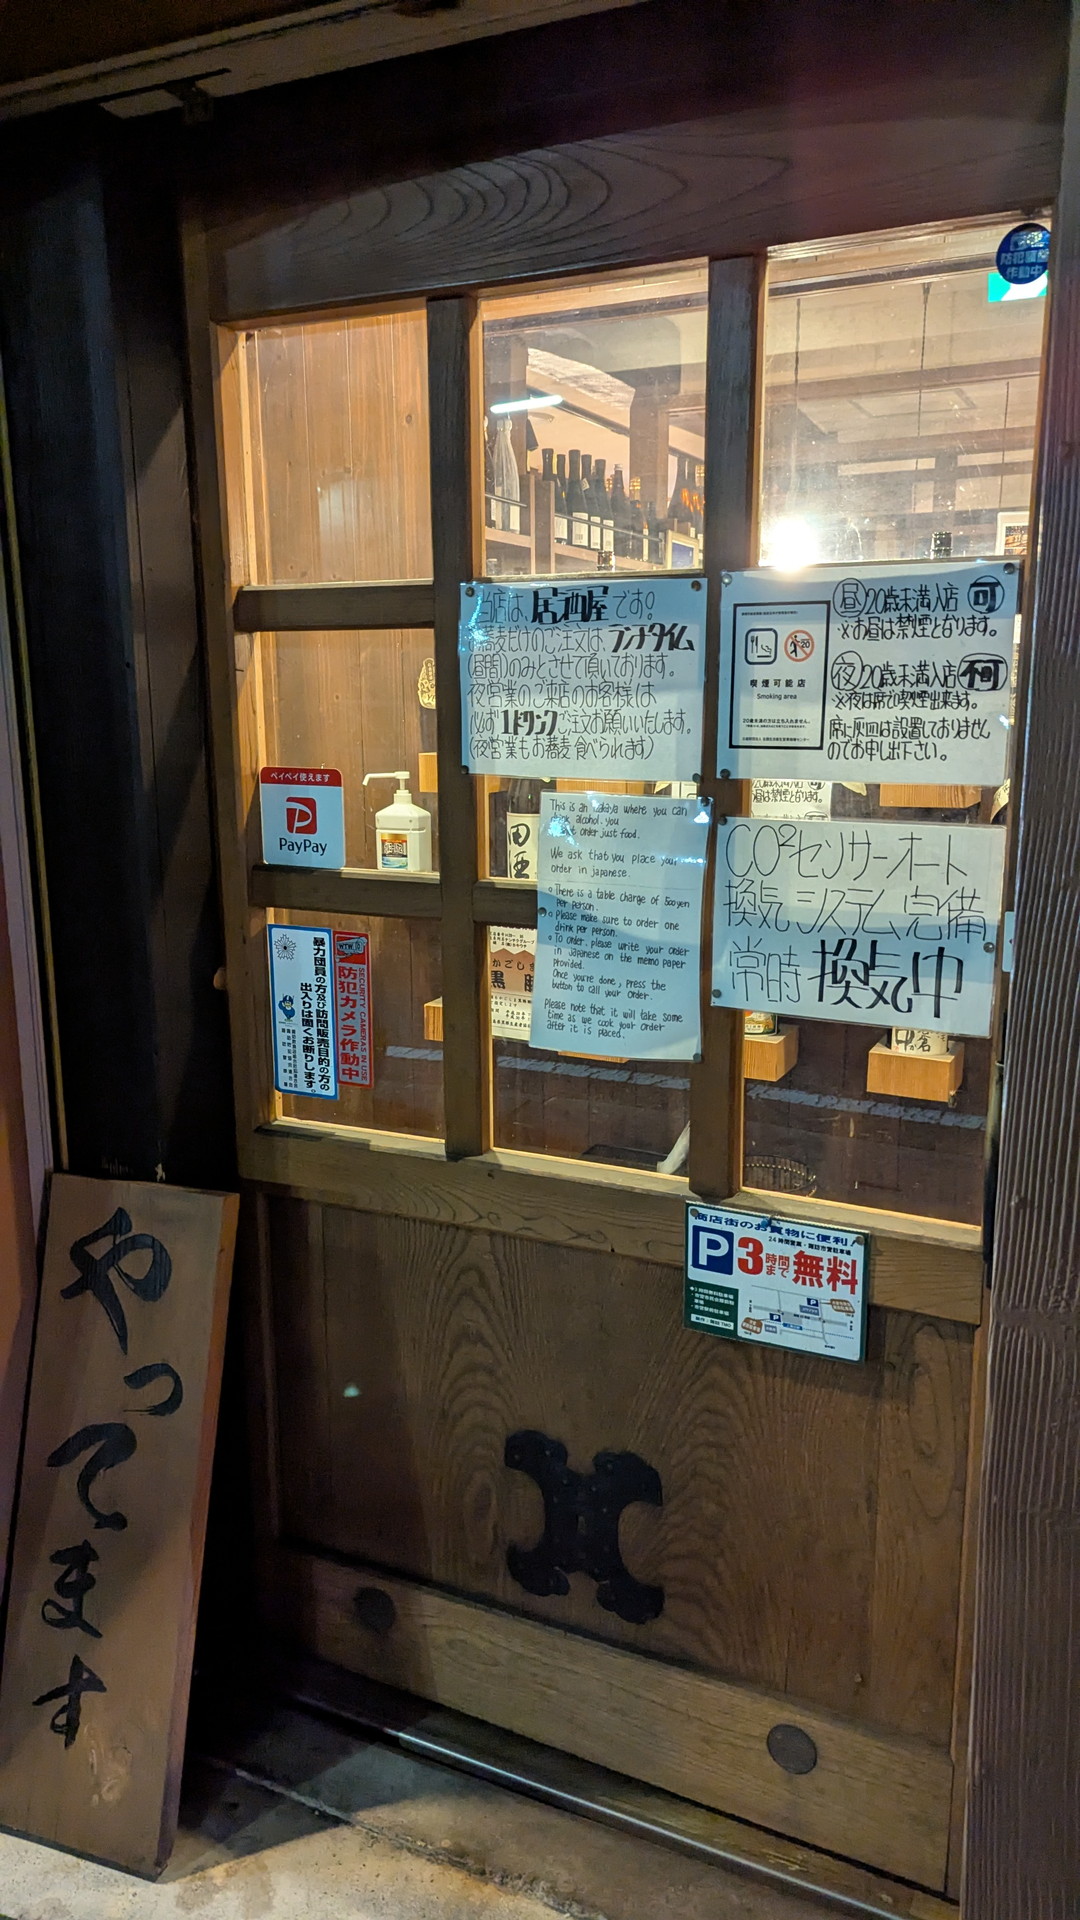 防犯
作動中
当店は、居酒屋です。
お蕎麦だけのご注文は、ランチタイム
(昼間)のみとさせて頂いております。
夜営業のご来店のお客様は
必ず1ドリンクご注文お願いいたします。
(夜営業もお蕎麦食べられます)
昼20歳未満入店 可
※お昼は禁煙となります。
夜20歳未満入店 不可
※夜は席で喫煙出来ます。
席に灰皿は設置しておりません
のでお申し出下さい。
20
喫煙可能店
Smoking area
20歳未満の方は立ち入れません。
ペイペイ使えます
PayPay
田酒
This is an izakaya where you can
drink alcohol. you
order just food.
We ask that you place your
order in japanese.
There is a table charge of 500yen
per person.
Please make sure to order one
drink per person.
To order, please write your order
in Japanese on the memo paper
provided.
Once you're done, press the
button to call your order.
Please note that it will take some
time as we cook your order
after it is placed.
CO²センサーオート
換気システム完備
常時換気中
暴力団員の方及び訪問販売目的の方の
出入りは固くお断りします。
防犯カメラ作動中
SECURITY CAMERAS IN USE
かごしま
黒
商店街のお買物に便利!
24時間営業・諏訪市営駐車場
P3時間まで無料
やってます